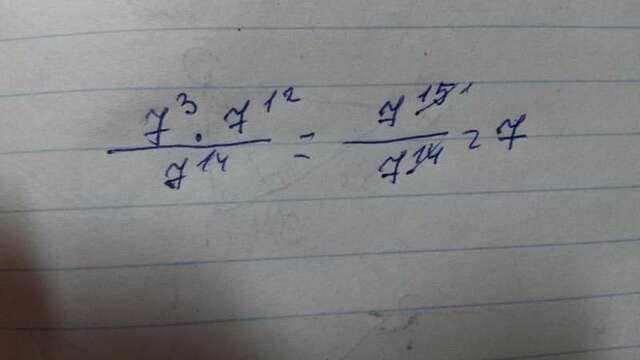 7³ · 7¹² / 7¹⁴ = 7¹⁵ / 7¹⁴ = 7